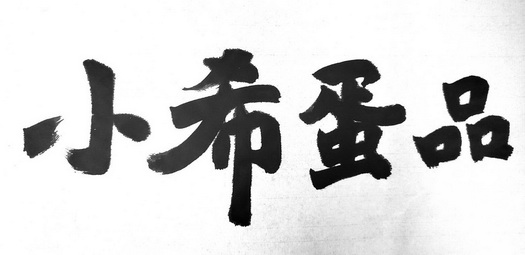 小希蛋品